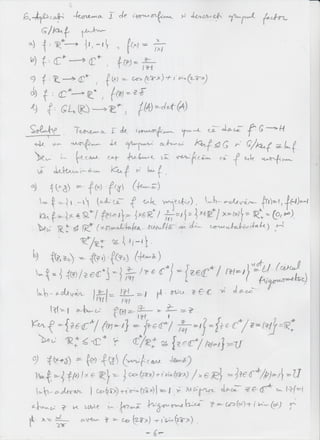 6. Aplicați teorema I de izomorfism și descrieți grupul factor
G/Kerf pentru
a) f: ℝ* → {1,-1}, f(x) = x/|x|
b) f: ℂ* → ℂ*, f(z) = z/|z|
c) f: ℝ → ℂ*, f(x) = cos(2πx) + i sin(2πx)
d) f: ℂ* → ℝ*, f(z) = z z̄
e) f: GLn(ℝ) → ℝ*, f(A) = det(A)
Soluție Teorema I de izomorfism spune că dacă f: G → H
este un morfism de grupuri atunci Kerf ⊴ G și G/Kerf ≅ Imf
Deci în fiecare caz trebuie să verificăm că f este morfism
să determinăm Kerf și Imf.
a) f(xy) = f(x)·f(y) (temă)
Imf = {1,-1} (adică f este surjectie). Într-adevăr f(1)=1, f(-1)=-1
Kerf = {x∈ℝ*/f(x)=1} = {x∈ℝ*/ x/|x|=1} = {x∈ℝ*/x=|x|} = ℝ*₊ = (0,∞)
Deci ℝ*₊ ⊴ ℝ* (normalitatea rezultă și din comutativitate) și
ℝ*/ℝ*₊ ≅ {1,-1}.
b) f(z₁z₂) = f(z₁)·f(z₂) (temă)
Imf = {f(z)/z∈ℂ*} = {z/|z| / z∈ℂ*} = {z∈ℂ*/ |z|=1} not= U (cercul
trigonometric)
Într-adevăr |z/|z|| = |z|/|z| = 1 pt orice z∈ℂ* și dacă
|z|=1 atunci f(z) = z/|z| = z/1 = z
Kerf = {z∈ℂ*/f(z)=1} = {z∈ℂ*/ z/|z|=1} = {z∈ℂ*/z=|z|} = ℝ*₊
Deci ℝ*₊ ⊴ ℂ* și ℂ*/ℝ*₊ ≅ {z∈ℂ*/|z|=1} = U
c) f(x+y) = f(x)·f(y) (verificare temă)
Imf = {f(x)/x∈ℝ} = {cos(2πx)+i sin(2πx)/x∈ℝ} = {z∈ℂ*/|z|=1} = U
Într-adevăr |cos(2πx)+i sin(2πx)| = 1 și reciproc dacă z∈ℂ* cu |z|=1
atunci z se scrie în formă trigonometrică z = cos(α)+i sin(α) și
pt x = α/2π avem z = cos(2πx)+i sin(2πx).
-6-